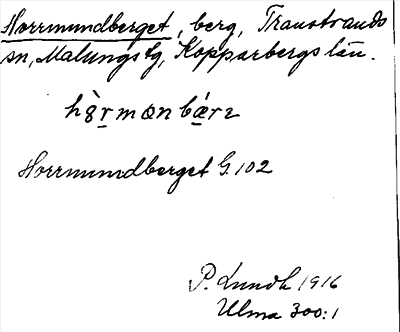 Horrmundberget, berg, Transtrands
sn, Malungs tg, Kopparbergs län.
Horrmundberget G. 102
P. Lundh 1916
Ulma 300:1